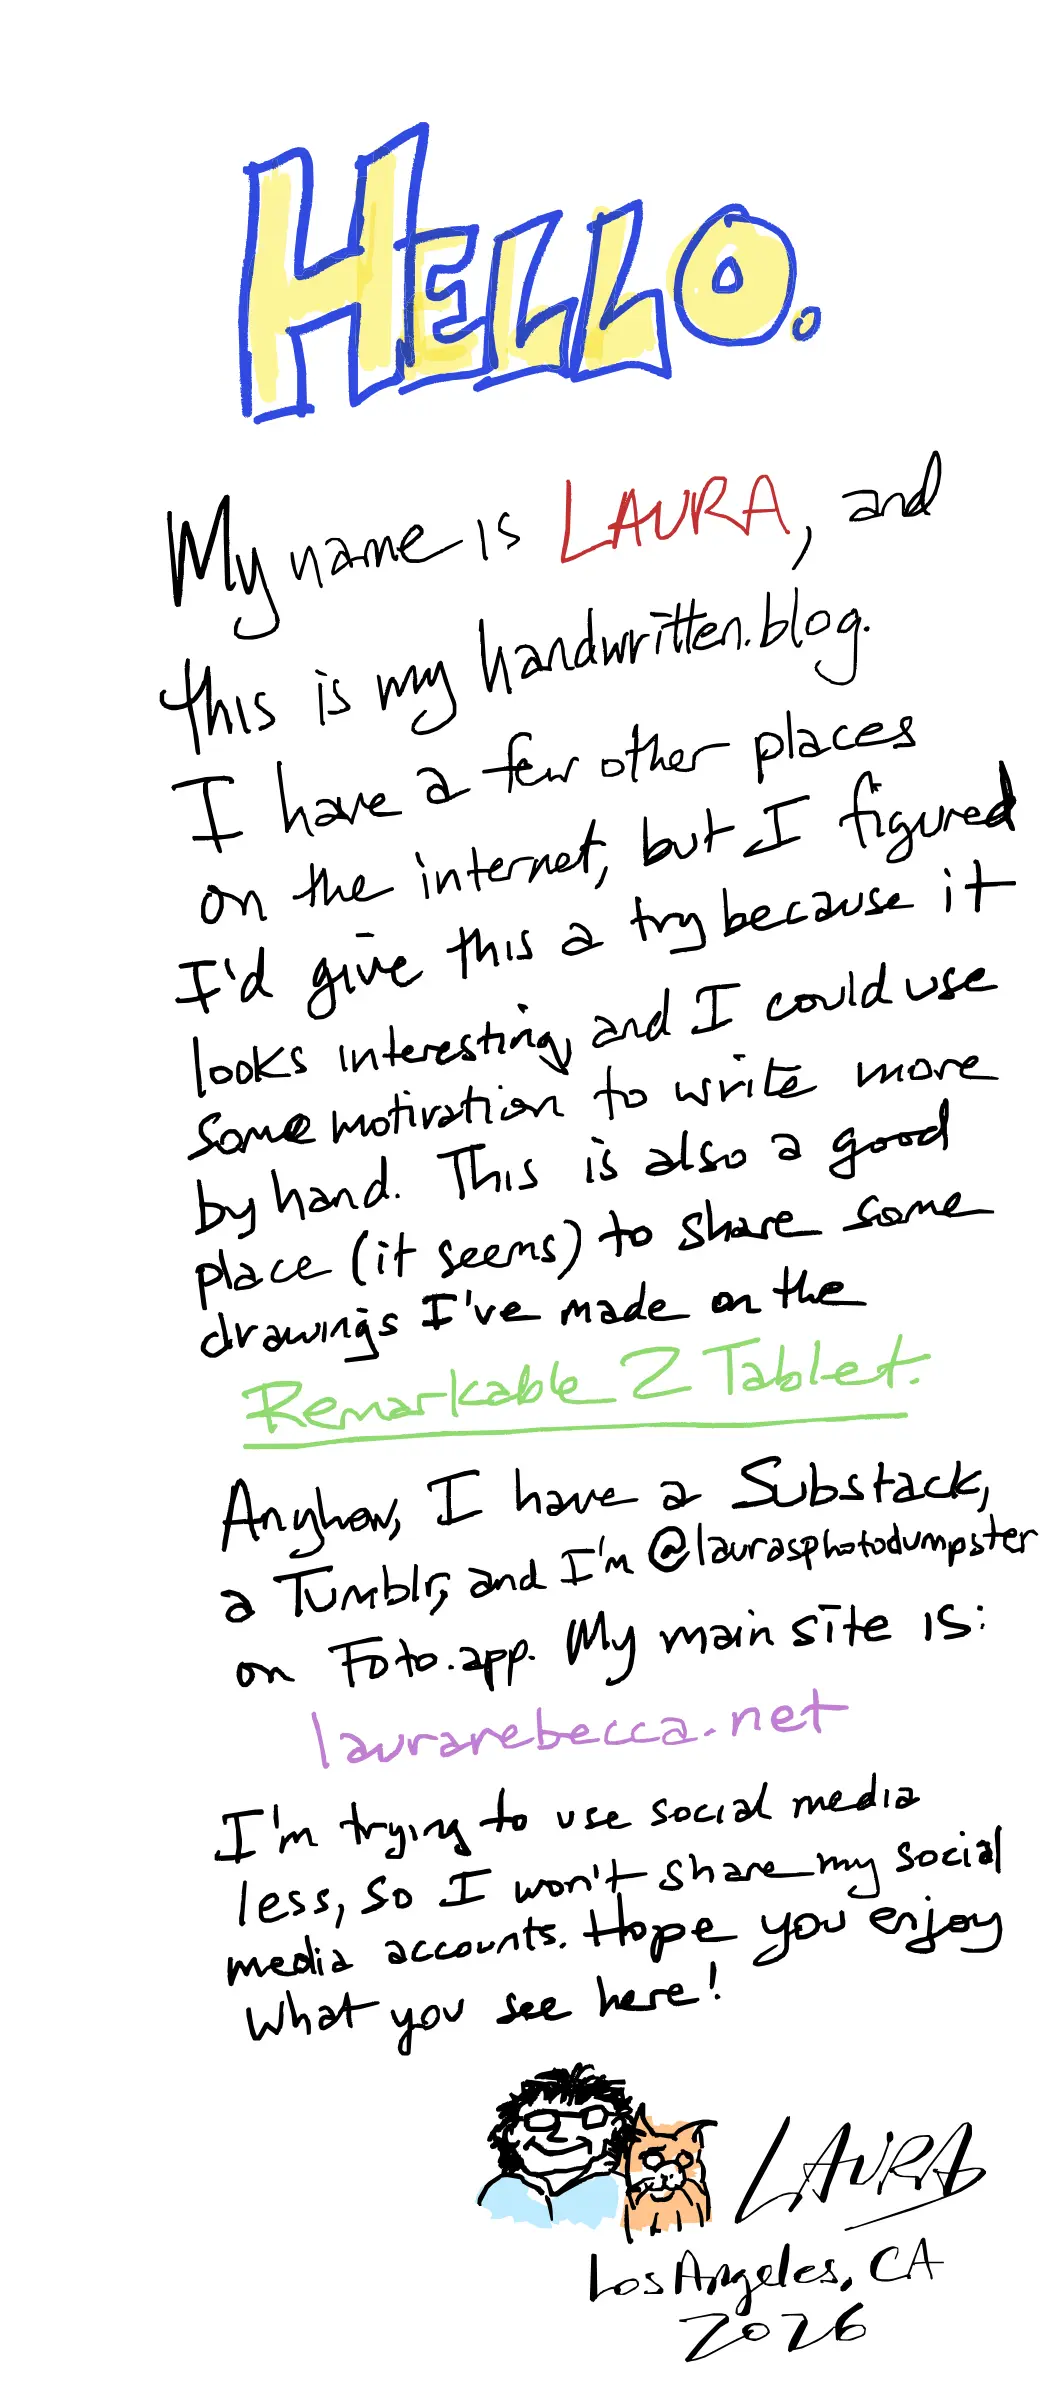 HELLO.
My name is LAURA, and
this is my handwritten.blog.
I have a few other places
on the internet, but I figured
I'd give this a try because it
looks interesting, and I could use
some motivation to write more
by hand. This is also a good
place (it seems) to share some
drawings I've made on the
Remarkable 2 Tablet.
Anyhow, I have a Substack,
a Tumblr, and I'm @laurasphotodumpster
on Foto.app. My main site is:
laurarebecca.net
I'm trying to use social media
less, so I won't share my social
media accounts. Hope you enjoy
what you see here!
LAURA
Los Angeles, CA
2026